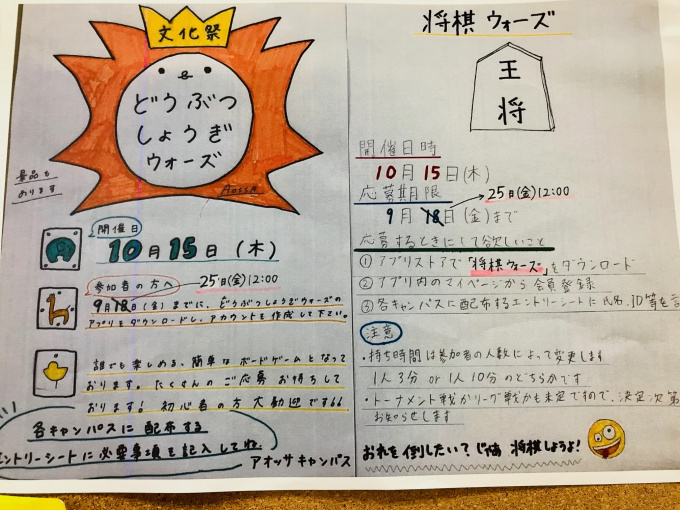 文化祭
どうぶつ
しょうぎ
ウォーズ
AOSSA
景品も
あります
開催日
10月15日(木)
参加者の方へ
25日(金)12:00
9月18日(金)までに、どうぶつしょうぎウォーズの
アプリをダウンロードし、アカウントを作成して下さい。
誰でも楽しめる、簡単なボードゲームとなって
おります。たくさんのご応募お待ちして
おります! 初心者の方大歓迎です
各キャンパスに配布する
エントリーシートに必要事項を記入してね。
アオッサキャンパス
将棋ウォーズ
王
将
開催日時
10月15日(木)
応募期限
25日(金)12:00
9月18日(金)まで
応募するときにして欲しいこと
① アプリストアで「将棋ウォーズ」をダウンロード
② アプリ内のマイページから会員登録
③ 各キャンパスに配布するエントリーシートに氏名、ID等を
注意
・持ち時間は参加者の人数によって変更します
1人3分 or 1人10分のどちらかです
・トーナメント戦かリーグ戦かも未定ですので、決定次第
お知らせします
おれを倒したい?じゃあ 将棋しようよ!